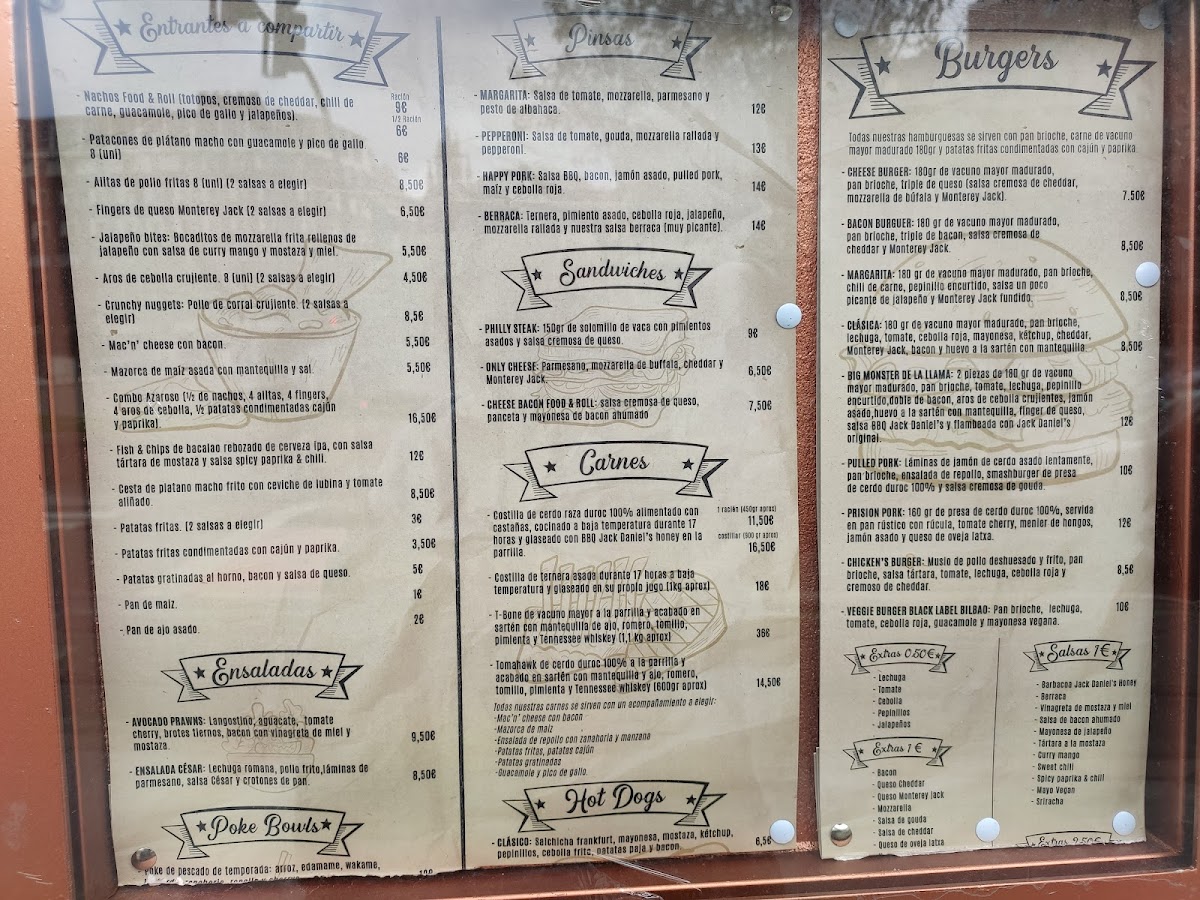 Entrantes a compartir
Ración
- Nachos Food & Roll (totopos, cremoso de cheddar, chili de 9€
carne, guacamole, pico de gallo y jalapeños). 1/2 Ración
6€
- Patacones de plátano macho con guacamole y pico de gallo
8 (uni) 6€
- Alitas de pollo fritas 8 (uni) (2 salsas a elegir) 8,50€
- Fingers de queso Monterey Jack (2 salsas a elegir) 6,50€
- Jalapeño bites: Bocaditos de mozzarella frita rellenos de
jalapeño con salsa de curry mango y mostaza y miel. 5,50€
- Aros de cebolla crujiente. 8 (uni) (2 salsas a elegir) 4,50€
- Crunchy nuggets: Pollo de Corral crujiente. (2 salsas a
elegir) 8,5€
- Mac'n' cheese con bacon. 5,50€
- Mazorca de maiz asada con mantequilla y sal. 5,50€
- Combo Azaroso (½ de nachos, 4 alitas, 4 fingers,
4 aros de cebolla, ½ patatas condimentadas cajún
y paprika). 16,50€
- Fish & Chips de bacalao rebozado de cerveza ipa, con salsa
tártara de mostaza y salsa spicy paprika & chili. 12€
- Cesta de platano macho frito con ceviche de lubina y tomate
aliñado. 8,50€
- Patatas fritas. (2 salsas a elegir) 3€
- Patatas fritas condimentadas con cajún y paprika. 3,50€
- Patatas gratinadas al horno, bacon y salsa de queso. 5€
- Pan de maiz. 1€
- Pan de ajo asado. 2€
Ensaladas
- AVOCADO PRAWNS: Langostino, aguacate, tomate
cherry, brotes tiernos, bacon con vinagreta de miel y
mostaza. 9,50€
- ENSALADA CÉSAR: Lechuga romana, pollo frito, láminas de
parmesano, salsa César y crotones de pan. 8,50€
Poke Bowls
Poke de pescado de temporada: arroz, edamame, wakame,
Pinsas
- MARGARITA: Salsa de tomate, mozzarella, parmesano y
pesto de albahaca. 12€
- PEPPERONI: Salsa de tomate, gouda, mozzarella rallada y
pepperoni. 13€
- HAPPY PORK: Salsa BBQ, bacon, jamón asado, pulled pork,
maíz y cebolla roja. 14€
- BERRACA: Ternera, pimiento asado, cebolla roja, jalapeño,
mozzarella rallada y nuestra salsa berraca (muy picante). 14€
Sandwiches
- PHILLY STEAK: 150gr de solomillo de vaca con pimientos
asados y salsa cremosa de queso. 9€
- ONLY CHEESE: Parmesano, mozzarella de buffala, cheddar y
Monterey Jack. 6,50€
- CHEESE BACON FOOD & ROLL: salsa cremosa de queso,
panceta y mayonesa de bacon ahumado 7,50€
Carnes
- Costilla de cerdo raza duroc 100% alimentado con 1 ración (450gr aprox)
castañas, cocinado a baja temperatura durante 17 11,50€
horas y glaseado con BBQ Jack Daniel's honey en la costillar (900 gr aprox)
parrilla. 16,50€
- Costilla de ternera asada durante 17 horas a baja
temperatura y glaseado en su propio jugo (1kg aprox) 18€
- T-Bone de vacuno mayor a la parrilla y acabado en
sartén con mantequilla de ajo, romero, tomillo,
pimienta y Tennessee whiskey (1,1 kg aprox) 36€
- Tomahawk de cerdo duroc 100% a la parrilla y
acabado en sartén con mantequilla y ajo, romero,
tomillo, pimienta y Tennessee whiskey (600gr aprox) 14,50€
Todas nuestras carnes se sirven con un acompañamiento a elegir:
-Mac'n' cheese con bacon
-Mazorca de maiz
-Ensalada de repollo con zanahoria y manzana
-Patatas fritas, patatas cajún
-Patatas gratinadas
-Guacamole y pico de gallo
Hot Dogs
- CLÁSICO: Salchicha frankfurt, mayonesa, mostaza, kétchup,
pepinillos, cebolla frita, patatas paja y bacon. 6,5€
Burgers
Todas nuestras hamburguesas se sirven con pan brioche, carne de vacuno
mayor madurado 180gr y patatas fritas condimentadas con cajún y paprika.
- CHEESE BURGER: 180gr de vacuno mayor madurado,
pan brioche, triple de queso (salsa cremosa de cheddar,
mozzarella de búfala y Monterey Jack). 7.50€
- BACON BURGUER: 180 gr de vacuno mayor madurado,
pan brioche, triple de bacon, salsa cremosa de
cheddar y Monterey Jack. 8,50€
- MARGARITA: 180 gr de vacuno mayor madurado, pan brioche,
chili de carne, pepinillo encurtido, salsa un poco
picante de jalapeño y Monterey Jack fundido. 8,50€
- CLÁSICA: 180 gr de vacuno mayor madurado, pan brioche,
lechuga, tomate, cebolla roja, mayonesa, kétchup, cheddar,
Monterey Jack, bacon y huevo a la sartén con mantequilla 8,50€
- BIG MONSTER DE LA LLAMA: 2 piezas de 180 gr de vacuno
mayor madurado, pan brioche, tomate, lechuga, pepinillo
encurtido,doble de bacon, aros de cebolla crujientes, jamón
asado,huevo a la sartén con mantequilla, finger de queso,
salsa BBQ Jack Daniel's y flambeada con Jack Daniel's 12€
original.
- PULLED PORK: Láminas de jamón de cerdo asado lentamente,
pan brioche, ensalada de repollo, smashburger de presa 10€
de cerdo duroc 100% y salsa cremosa de gouda.
- PRISION PORK: 160 gr de presa de cerdo duroc 100%, servida
en pan rústico con rúcula, tomate cherry, menier de hongos, 12€
jamón asado y queso de oveja latxa.
- CHICKEN'S BURGER: Muslo de pollo deshuesado y frito, pan
brioche, salsa tártara, tomate, lechuga, cebolla roja y 8,5€
cremoso de cheddar.
- VEGGIE BURGER BLACK LABEL BILBAO: Pan brioche, lechuga, 10€
tomate, cebolla roja, guacamole y mayonesa vegana.
Extras 0.50€
- Lechuga
- Tomate
- Cebolla
- Pepinillos
- Jalapeños
Extras 1€
- Bacon
- Queso Cheddar
- Queso Monterey Jack
- Mozzarella
- Salsa de gouda
- Salsa de cheddar
- Queso de oveja latxa
Salsas 1€
- Barbacoa Jack Daniel's Honey
- Berraca
- Vinagreta de mostaza y miel
- Salsa de bacon ahumado
- Mayonesa de jalapeño
- Tártara a la mostaza
- Curry mango
- Sweet chili
- Spicy paprika & chili
- Mayo Vegan
- Sriracha
Extras 2.50€